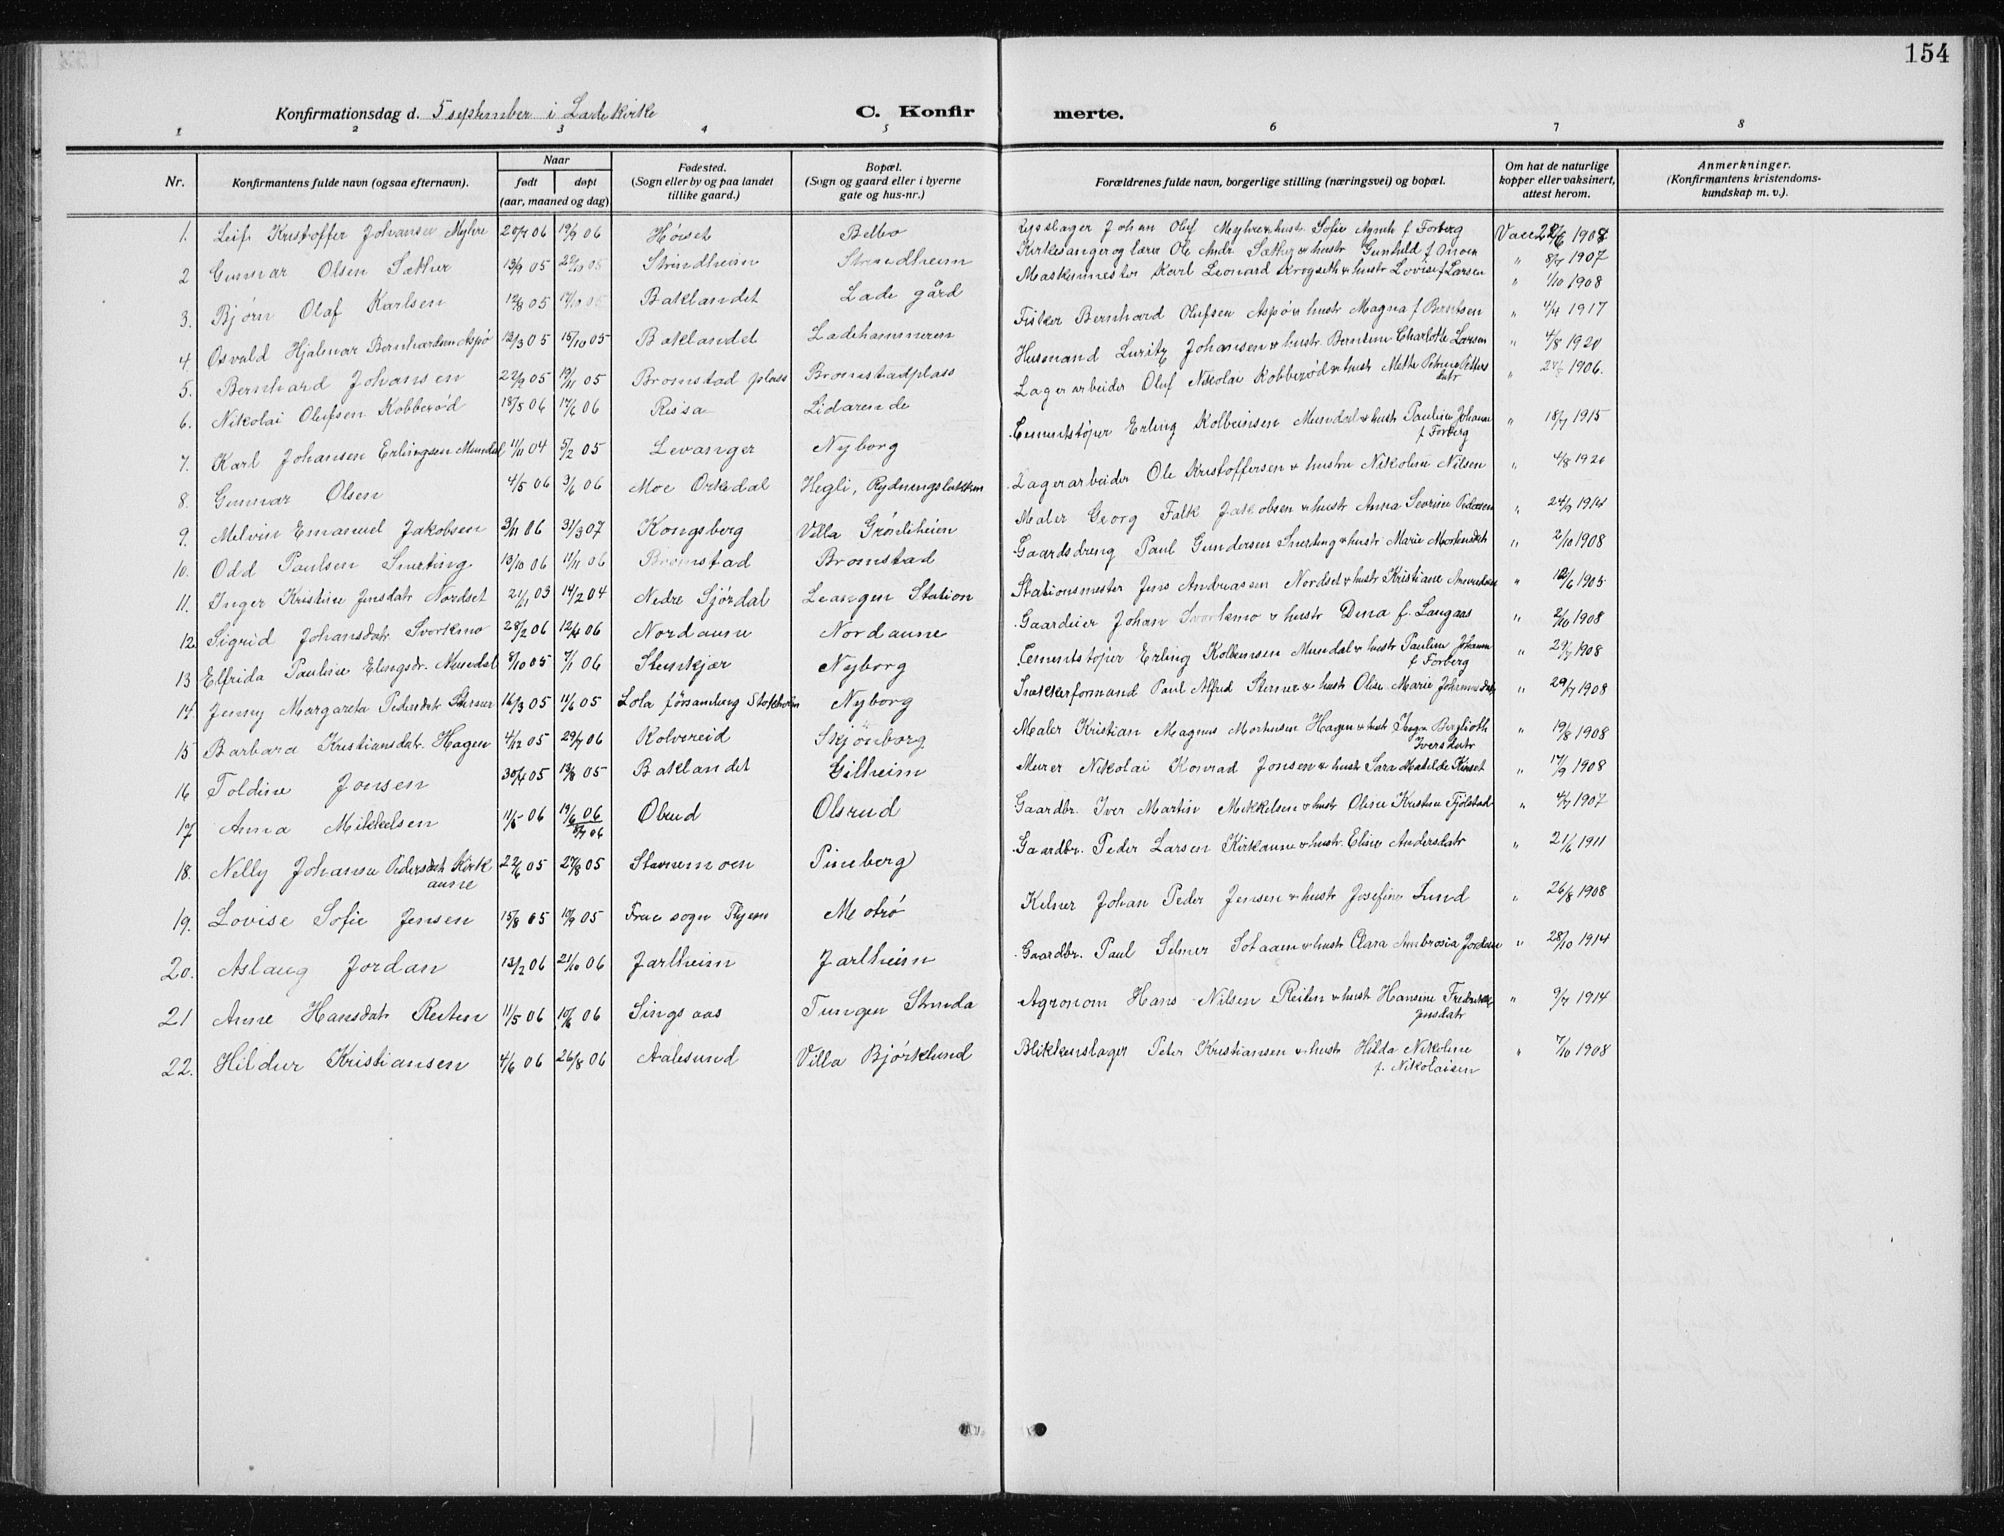 154
Konfirmationsdag d. 5 september i Ladekirke C. Konfirmerte.
1 2 3 4 5 6 7 8
Nr. Konfirmantens fulde navn (ogsaa efternavn). Naar født døpt (aar, maaned og dag) Fødested. (Sogn eller by og paa landet tillike gaard.) Bopæl. (Sogn og gaard eller i byerne gate og hus-nr.) Forældrenes fulde navn, borgerlige stilling (næringsvei) og bopæl. Om hat de naturlige kopper eller vaksinert, attest herom. Anmerkninger. (Konfirmantens kristendomskundskap m. v.).
1. Leif Kristoffer Johansen Myhre 20/7 06 19/9 06 Høiset Belbo Johan Olef Myhre & hustr Sofie Agnete f Forberg Vacc 1908
2 Gunnar Olsen Sæther 13/9 05 Strindheim Strindheim Kirkesanger og lærer Ole Andr. Sæther & hustr Gunhild f Moen " 8/7 1907
3. Bjørn Olaf Karlsen 12/8 05 Baklandet Lade gård Maskinmester Karl Leonard Krogseth & hustr Lovise f Larsen " 1/10 1908
4. Osvald Hjalmar Bernhardsen Aspø 12/3 05 15/10 05 Baklandet Ladehammeren Fisker Bernhard Olufsen Aspø & hustr Magna f Berntsen " 4/4 1917
5. Bernhard Johansen 22/9 05 19/11 05 Bromstad plass Bromstadplass Husmand Luritz Johansen & hustr. Berntine Charlotte Larsen " 4/8 1920
6. Nikolai Olufsen Kobberød 18/5 06 17/6 06 Rissa Lidarende Lagerarbeider Oluf Nikolai Kobberød & hustr Mette Petrine Petters datr " 1906.
7. Karl Johansen Erlingsen Mundal 11/11 04 5/2 05 Levanger Nyborg Cementstøper Erling Kolbeinsen Mundal & hustr Pauline Johanne f Forberg " 18/7 1915
8. Gunnar Olsen 4/5 06 3/6 06 Moe Orkedal Hegli, Rydningslokken Lagerarbeider Ole Kristoffersen & hustru Nikoline Nilsen " 4/8 1920
9. Melvin Emanuel Jakobsen 3/11 06 31/3 07 Kongsberg Villa Grønliheien Maler Georg Falk Jakobsen & hustr Anna Severine Pedersen " 24/9 1914
10. Odd Paulsen Snerting 13/10 06 11/11 06 Bromstad Bromstad Gaardsdreng Paul Gundersen Snerting & hustr Marie Mortensdatr " 2/10 1908
11. Inger Kristine Jensdatr Nordset 21/11 03 14/2 04 Nedre Sjørdal Leangen Station Stationsmester Jens Andreassen Nordset & hustr Kristiane " 12/6 1905
12. Sigrid Johansdatr Svorkmo 28/2 06 12/4 06 Nordaune Nordaune Gaardeier Johan Svorkmo & hustr Dina f. Langaas " 2/10 1908
13 Elfrida Pauline Elingsdr. Mundal 8/10 05 7/1 06 Stenkjær Nyborg Cementstøper Erling Kolbeinsen Mundal & hustr Pauline Johanne f Forberg " 29/7 1908
14. Jenny Margareta Pedersdatr Sterner 16/3 05 11/6 05 Lola församling Stokholm Nyborg Snekkerformand Paul Alfred Sterner & hustr Olise Marie " 29/7 1908
15 Barbara Kristiansdatr. Hagen 4/12 05 29/7 06 Kolvereid Skjönborg Maler Kristian Magnus Mortensen Hagen & hustr Inga Berglioth Iversdatr " 19/8 1908
16 Toldine Jonsen 30/4 05 13/8 05 Baklandet Gilheim Murer Nikolai Konrad Jonsen & hustr Sara Matilde Kinset " 17/9 1908
17 Anna Mikkelsen 11/5 06 19/6 06 8/7 06 Olsrud Gaardbr. Iver Martin Mikkelsen & hustr Oline Kristine Fjölstad " 4/7 1907
18. Nelly Johanne Pedersdatr Kirkaune 22/6 05 27/8 05 Stavnemoen Pineberg Gaardbr. Peder Larsen Kirkaune & hustr. Eline Andersdatr " 21/6 1911
19. Lovise Sofie Jensen 15/8 05 10/9 05 Frue sogn Motrø Kelner Johan Peder Jensen & hustr Josefine Lund " 26/8 1908
20. Aslaug Jordan 13/2 06 21/10 06 Jarlheim Jarlheim Gaardbr. Paul Selmer Sotaaen & hustr Clara Ambrosia Jordan " 28/10 1914
21 Anne Hansdatr Reiten 11/5 06 10/6 06 Singsaas Tungen Strinda Agronom Hans Nilsen Reiten & hustr Hansine Fredrikke Jensdatr " 9/7 1914
22. Hildur Kristiansen 4/6 06 26/8 06 Aalesund Villa Bjørklund Blikkenslager Peter Kristiansen & hustr Hilda Nikoline f. Nikolaisen " 7/10 1908